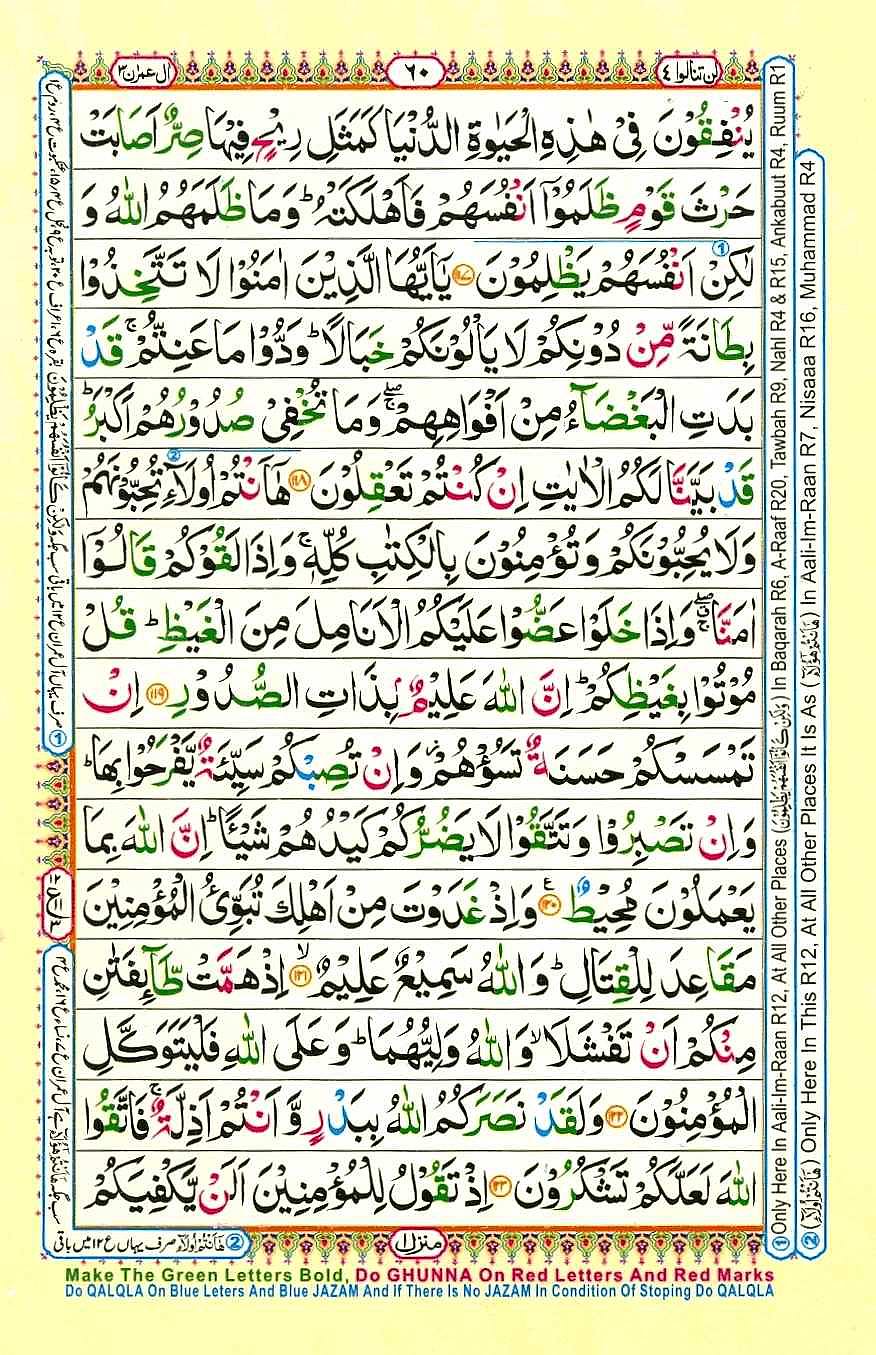 لن تنالوا ٤
٦٠
ال عمران ٣
يُنْفِقُوْنَ فِيْ هٰذِهِ الْحَيٰوةِ الدُّنْيَا كَمَثَلِ رِيْحٍ فِيْهَا صِرٌّ اَصَابَتْ
حَرْثَ قَوْمٍ ظَلَمُوْۤا اَنْفُسَهُمْ فَاَهْلَكَتْهُ ؕ وَمَا ظَلَمَهُمُ اللّٰهُ وَ
لٰكِنْ اَنْفُسَهُمْ يَظْلِمُوْنَ ﴿١١٧﴾ يٰۤاَيُّهَا الَّذِيْنَ اٰمَنُوْا لَا تَتَّخِذُوْا
بِطَانَةً مِّنْ دُوْنِكُمْ لَا يَاْلُوْنَكُمْ خَبَالًا ؕ وَدُّوْا مَا عَنِتُّمْ ۚ قَدْ
بَدَتِ الْبَغْضَآءُ مِنْ اَفْوَاهِهِمْ ۖۚ وَمَا تُخْفِيْ صُدُوْرُهُمْ اَكْبَرُ ؕ
قَدْ بَيَّنَّا لَكُمُ الْاٰيٰتِ اِنْ كُنْتُمْ تَعْقِلُوْنَ ﴿١١٨﴾ هٰۤاَنْتُمْ اُولَآءِ تُحِبُّوْنَهُمْ
وَلَا يُحِبُّوْنَكُمْ وَتُؤْمِنُوْنَ بِالْكِتٰبِ كُلِّهٖ ۚ وَاِذَا لَقُوْكُمْ قَالُوْۤا
اٰمَنَّا ۖۚ وَاِذَا خَلَوْا عَضُّوْا عَلَيْكُمُ الْاَنَامِلَ مِنَ الْغَيْظِ ؕ قُلْ
مُوْتُوْا بِغَيْظِكُمْ ؕ اِنَّ اللّٰهَ عَلِيْمٌۢ بِذَاتِ الصُّدُوْرِ ﴿١١٩﴾ اِنْ
تَمْسَسْكُمْ حَسَنَةٌ تَسُؤْهُمْ ؗ وَاِنْ تُصِبْكُمْ سَيِّئَةٌ يَّفْرَحُوْا بِهَا ؕ
وَاِنْ تَصْبِرُوْا وَتَتَّقُوْا لَا يَضُرُّكُمْ كَيْدُهُمْ شَيْـًٔا ؕ اِنَّ اللّٰهَ بِمَا
يَعْمَلُوْنَ مُحِيْطٌ ﴿١٢٠﴾ وَاِذْ غَدَوْتَ مِنْ اَهْلِكَ تُبَوِّئُ الْمُؤْمِنِيْنَ
مَقَاعِدَ لِلْقِتَالِ ؕ وَاللّٰهُ سَمِيْعٌ عَلِيْمٌ ﴿١٢١﴾ اِذْ هَمَّتْ طَّآئِفَتٰنِ
مِنْكُمْ اَنْ تَفْشَلَا ۙ وَاللّٰهُ وَلِيُّهُمَا ؕ وَعَلَى اللّٰهِ فَلْيَتَوَكَّلِ
الْمُؤْمِنُوْنَ ﴿١٢٢﴾ وَلَقَدْ نَصَرَكُمُ اللّٰهُ بِبَدْرٍ وَّاَنْتُمْ اَذِلَّةٌ ۚ فَاتَّقُوا
اللّٰهَ لَعَلَّكُمْ تَشْكُرُوْنَ ﴿١٢٣﴾ اِذْ تَقُوْلُ لِلْمُؤْمِنِيْنَ اَلَنْ يَّكْفِيَكُمْ
① Only Here In Aali-Im-Raan R12, At All Other Places (وَلٰكِنْ كَانُوْۤا اَنْفُسَهُمْ يَظْلِمُوْنَ) In Baqarah R6, A-Raaf R20, Tawbah R9, Nahl R4 & R15, Ankabuut R4, Ruum R1
② (هٰۤاَنْتُمْ اُولَآءِ) Only Here In This R12, At All Other Places It Is As (هٰۤاَنْتُمْ هٰۤؤُلَآءِ) In Aali-Im-Raan R7, Nisaaa R16, Muhammad R4
② هٰۤاَنْتُمْ اُولَآءِ صرف یہاں ع ۱۲ میں باقی
منزل ١
Make The Green Letters Bold, Do GHUNNA On Red Letters And Red Marks
Do QALQLA On Blue Leters And Blue JAZAM And If There Is No JAZAM In Condition Of Stoping Do QALQLA